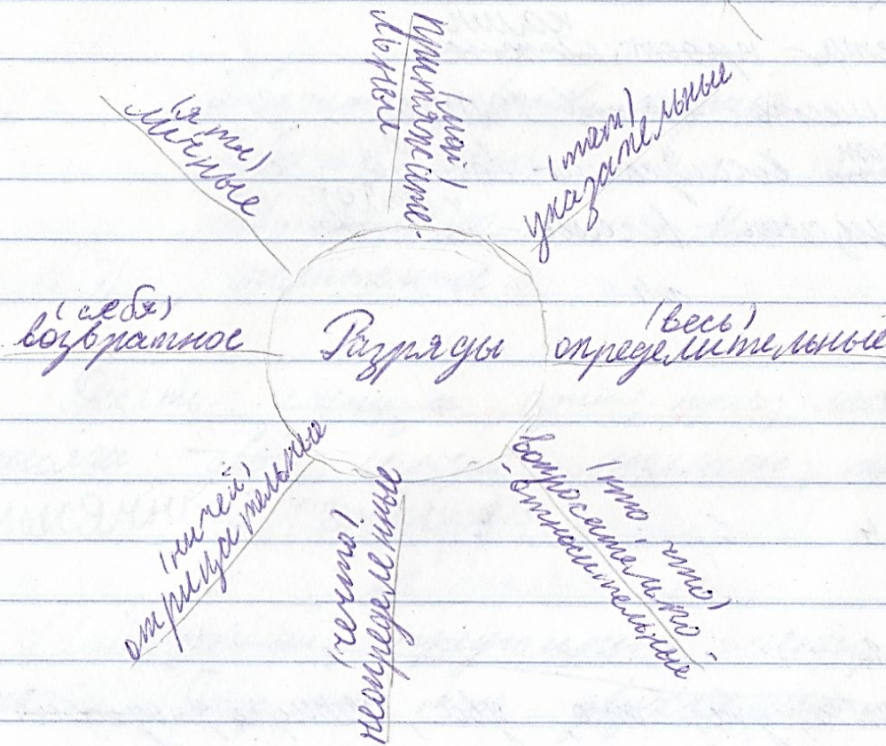 Разряды
(я ты)
личные
(мой)
притяжате-
льные
(тот)
указательные
(весь)
определительные
(кто, что)
вопросительно-
относительные
(нечто)
неопределенные
(ничей)
отрицательные
(себя)
возвратное